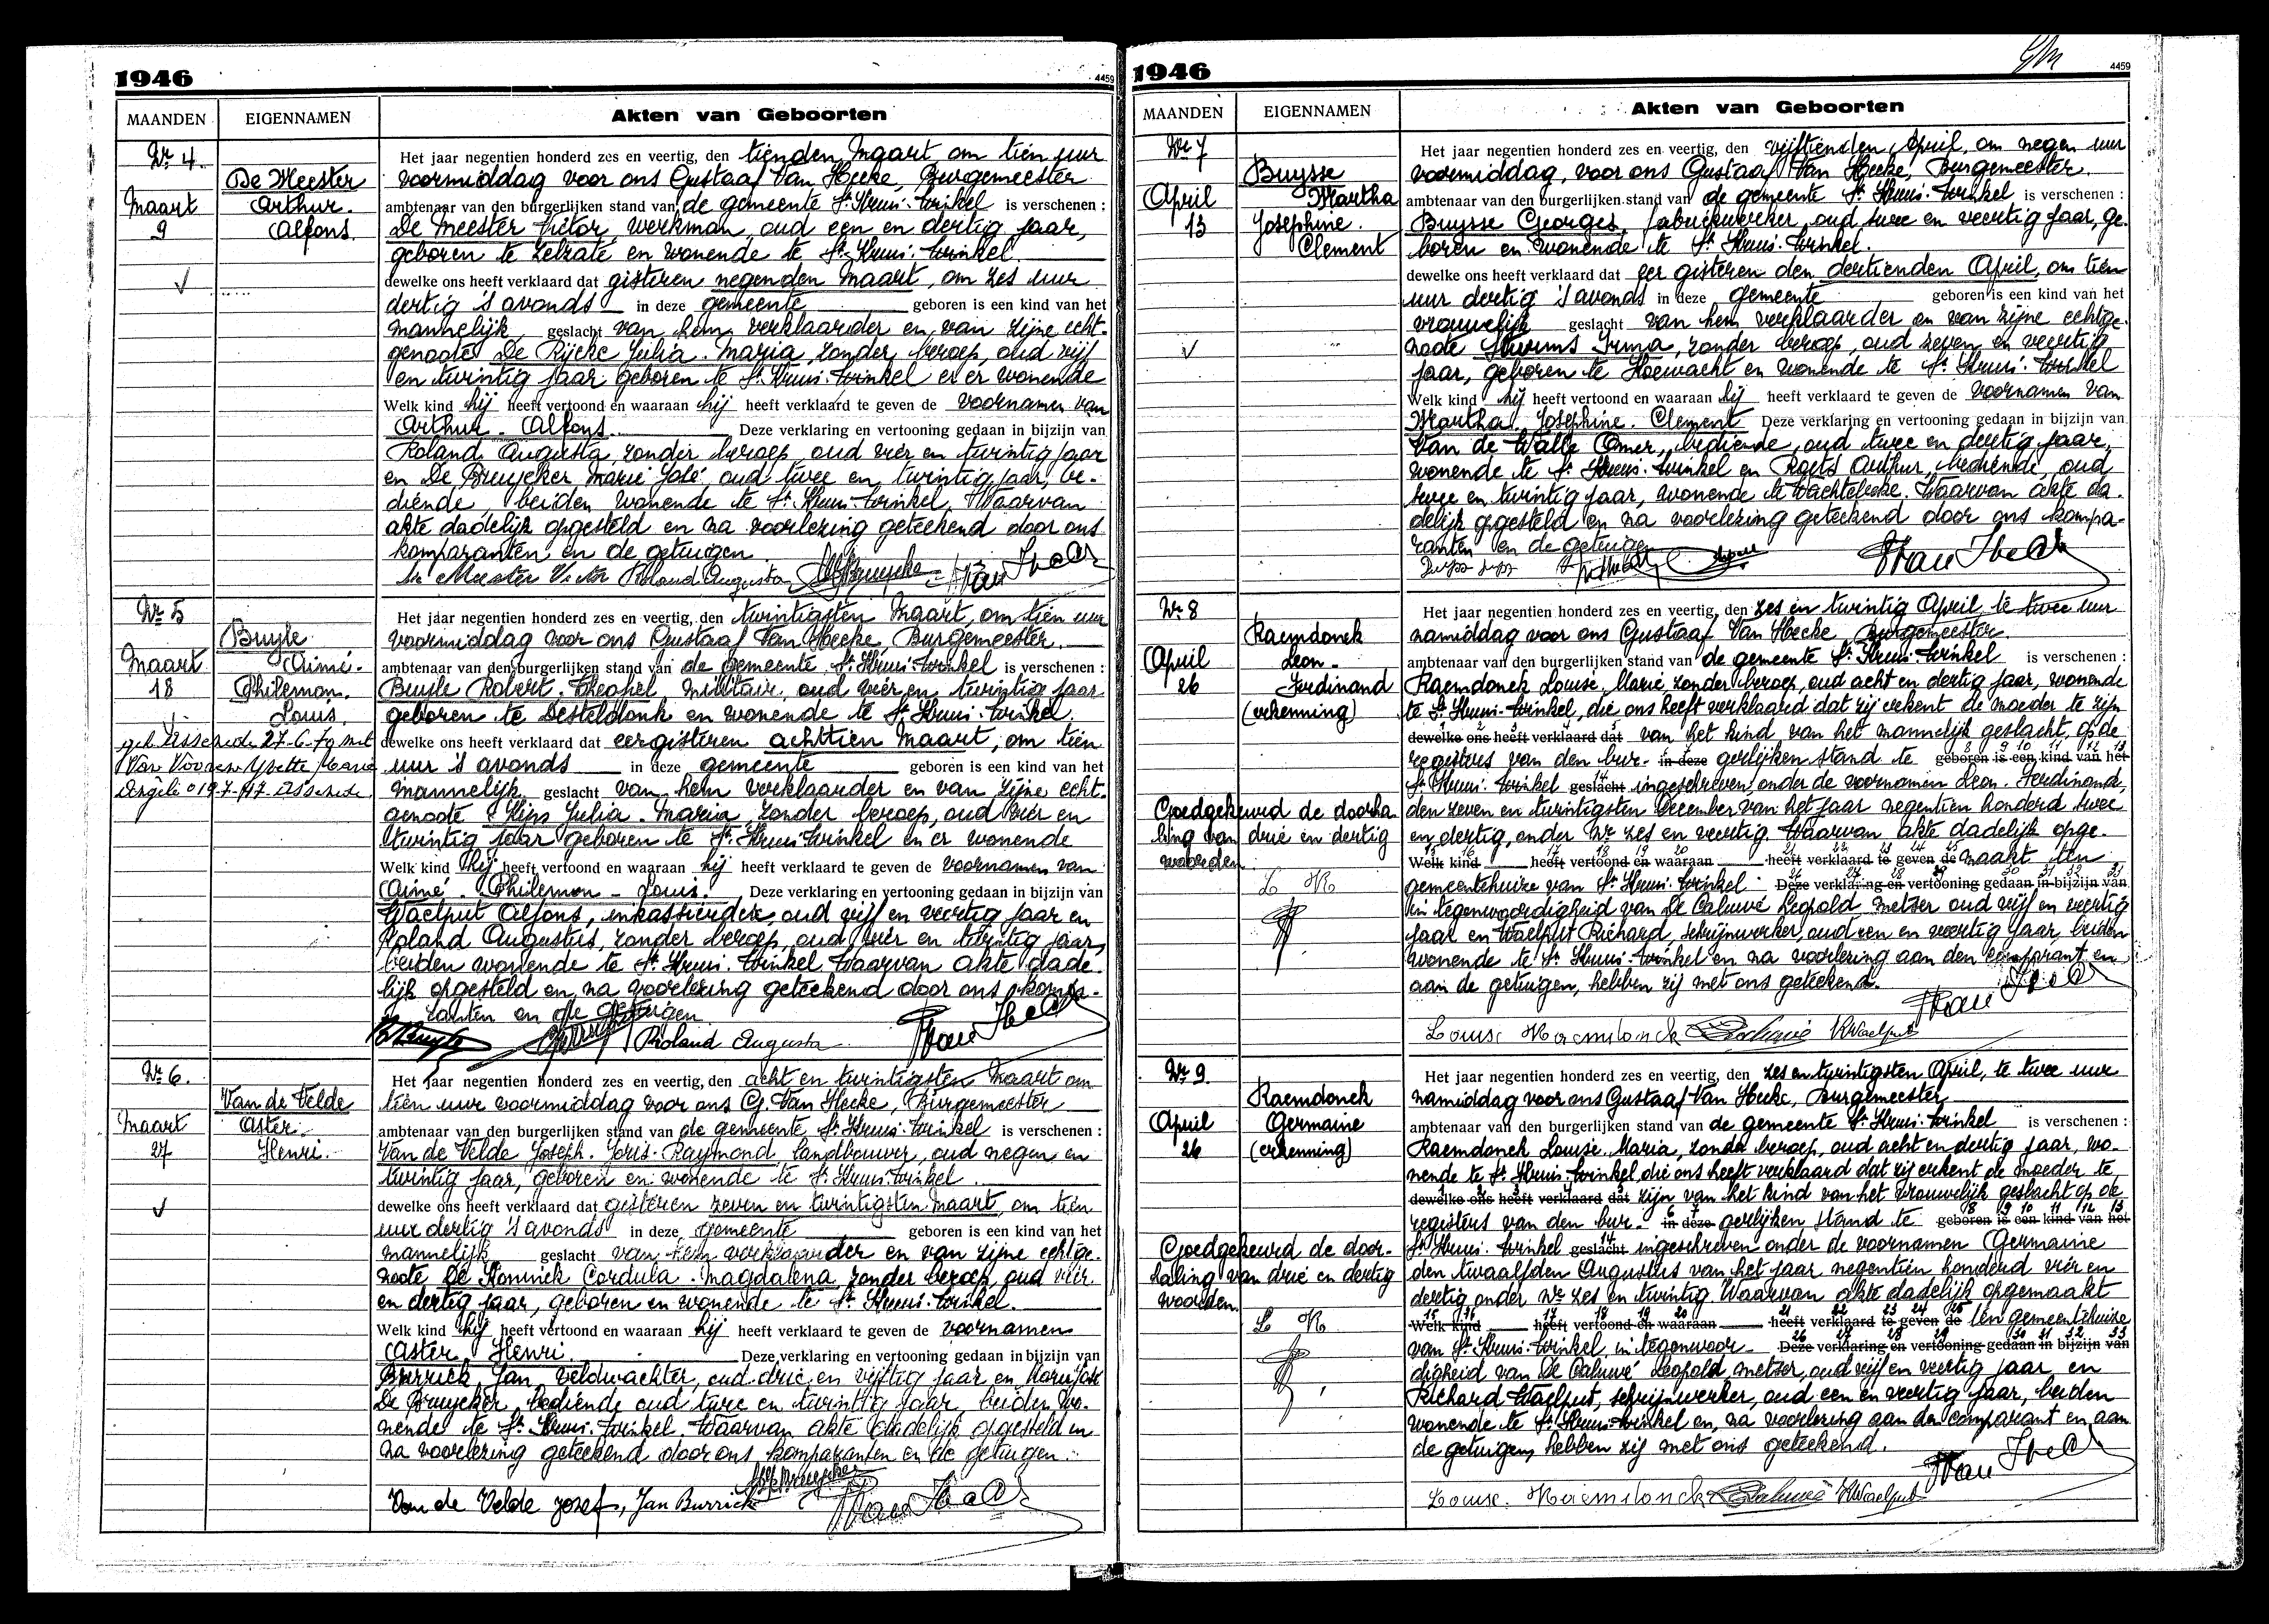 1946
4459
MAANDEN
EIGENNAMEN
Akten van Geboorten
Nr 4.
De Meester
Arthur.
Alfons.
Maart
9
Het jaar negentien honderd zes en veertig, den tienden Maart om tien uur
voormiddag voor ons Gustaaf Van Hecke, Burgemeester
ambtenaar van den burgerlijken stand van de gemeente St. Kruis-Winkel is verschenen :
De Meester Victor, werkman, oud een en dertig jaar,
geboren te Zelzate en wonende te St. Kruis-Winkel
dewelke ons heeft verklaard dat gisteren negenden Maart, om zes uur
dertig 's avonds in deze gemeente geboren is een kind van het
mannelijk geslacht van hem verklaarder en van zijne echt-
genoote De Rijcke Julia-Maria, zonder beroep, oud vijf
en twintig jaar geboren te St. Kruis-Winkel en er wonende
Welk kind hij heeft vertoond en waaraan hij heeft verklaard te geven de voornamen van
Arthur - Alfons. Deze verklaring en vertooning gedaan in bijzijn van
Roland Augusta, zonder beroep, oud vier en twintig jaar
en De Bruycker Marie José, oud twee en twintig jaar, be-
diende beiden wonende te St. Kruis-Winkel. Waarvan
akte dadelijk opgesteld en na voorlezing geteekend door ons
komparanten en de getuigen
De Meester Victor Roland Augusta
Nr 5
Buyle
Aimé-
Philemon.
Louis.
Maart
18
geh. Assenede 27-6-70 met
Van Vooren Yvette Maria
Het jaar negentien honderd zes en veertig, den twintigsten Maart, om tien uur
voormiddag voor ons Gustaaf Van Hecke, Burgemeester.
ambtenaar van den burgerlijken stand van de Gemeente St. Kruis-Winkel is verschenen :
Buyle Robert-Theophel, militair, oud vier en twintig jaar
geboren te Desteldonk en wonende te St. Kruis-Winkel.
dewelke ons heeft verklaard dat eergisteren achttien Maart, om tien
uur 's avonds in deze gemeente geboren is een kind van het
mannelijk geslacht van hem verklaarder en van zijne echt-
genoote Kips Julia-Maria, zonder beroep, oud vier en
twintig jaar geboren te St. Kruis-Winkel en er wonende
Welk kind hij heeft vertoond en waaraan hij heeft verklaard te geven de voornamen van
Aimé - Philemon - Louis. Deze verklaring en vertooning gedaan in bijzijn van
Waelput Alfons, inkasseerder oud vijf en veertig jaar en
Roland Augustus, zonder beroep, oud vier en twintig jaar,
beiden wonende te St. Kruis-Winkel. Waarvan akte dade-
lijk opgesteld en na voorlezing geteekend door ons kompa-
ranten en de getuigen
Roland Augusta
Nr 6.
Van de Velde
Aster-
Henri.
Maart
27
Het jaar negentien honderd zes en veertig, den acht en twintigsten Maart om
tien uur voormiddag voor ons G. Van Hecke, Burgemeester
ambtenaar van den burgerlijken stand van de gemeente St. Kruis-Winkel is verschenen :
Van de Velde Joseph-Joris-Raymond landbouwer, oud negen en
twintig jaar, geboren en wonende te St. Kruis-Winkel
dewelke ons heeft verklaard dat gisteren zeven en twintigsten Maart, om tien
uur dertig 's avonds in deze gemeente geboren is een kind van het
mannelijk geslacht van hem verklaarder en van zijne echtge-
noote De Koninck Cordula-Magdalena zonder beroep, oud vier
en dertig jaar, geboren en wonende te St. Kruis-Winkel.
Welk kind hij heeft vertoond en waaraan hij heeft verklaard te geven de voornamen
Aster Henri Deze verklaring en vertooning gedaan in bijzijn van
Burrick Jan, veldwachter, oud drie en vijftig jaar en Marie José
De Bruycker, bediende oud twee en twintig jaar, beiden wo-
nende te St. Kruis-Winkel. Waarvan akte dadelijk opgesteld en
na voorlezing geteekend door ons komparanten en de getuigen.
Van de Velde Jozef, Jan Burrick
1946
4459
MAANDEN
EIGENNAMEN
Akten van Geboorten
Nr 7
Buysse
Martha
Josephine.
Clement
April
13
Het jaar negentien honderd zes en veertig, den vijftienden April, om negen uur
voormiddag, voor ons Gustaaf Van Hecke, Burgemeester.
ambtenaar van den burgerlijken stand van de gemeente St. Kruis-Winkel is verschenen :
Buysse Georges, fabriekwerker, oud twee en veertig jaar, ge-
boren en wonende te St. Kruis-Winkel.
dewelke ons heeft verklaard dat eer gisteren den dertienden April, om tien
uur dertig 's avonds in deze gemeente geboren is een kind van het
vrouwelijk geslacht van hem verklaarder en van zijne echtge-
noote Irma, zonder beroep, oud zeven en veertig
jaar, geboren te Moerwacht en wonende te St. Kruis-Winkel
Welk kind hij heeft vertoond en waaraan hij heeft verklaard te geven de voornamen van
Martha Josephine. Clement Deze verklaring en vertooning gedaan in bijzijn van
Van de Walle Omer, bediende, oud twee en dertig jaar,
wonende te St. Kruis-Winkel en Roets Arthur, bediende, oud
twee en twintig jaar, wonende te Wachtebeke. Waarvan akte da-
delijk opgesteld en na voorlezing geteekend door ons kompa-
ranten en de getuigen
Nr 8
Raemdonck
Leon-
Ferdinand
(erkenning)
April
26
Het jaar negentien honderd zes en veertig, den zes en twintig April te twee uur
namiddag voor ons Gustaaf Van Hecke, Burgemeester.
ambtenaar van den burgerlijken stand van de gemeente St. Kruis-Winkel is verschenen :
Raemdonck Louise, Marie, zonder beroep, oud acht en dertig jaar, wonende
te St. Kruis-Winkel, die ons heeft verklaard dat zij erkent de moeder te zijn
dewelke ons heeft verklaard dat van het kind van het mannelijk geslacht, op de
registers van den bur- in deze gerlijken stand te geboren is een kind van het
St. Kruis-Winkel geslacht ingeschreven, onder de voornamen Leon-Ferdinand,
den zeven en twintigsten December van het jaar negentien honderd twee
en dertig, onder Nr zes en veertig. Waarvan akte dadelijk opge-
Welk kind heeft vertoond en waaraan heeft verklaard te geven de maakt ten
gemeentehuize van St. Kruis-Winkel Deze verklaring en vertooning gedaan in bijzijn van
in tegenwoordigheid van De Caluwé Leopold metser oud vijf en veertig
jaar en Waelput Richard, schrijnwerker, oud een en veertig jaar, beiden
wonende te St. Kruis-Winkel en na voorlezing aan den comparant en
aan de getuigen, hebben zij met ons geteekend.
Goedgekeurd de doorha-
ling van drie en dertig
woorden.
L R
Louise Raemdonck De Caluwé RWaelput
Nr 9
Raemdonck
Germaine
(erkenning)
April
26
Het jaar negentien honderd zes en veertig, den zes en twintigsten April, te twee uur
namiddag voor ons Gustaaf Van Hecke, Burgemeester,
ambtenaar van den burgerlijken stand van de gemeente St. Kruis-Winkel is verschenen :
Raemdonck Louise, Maria, zonder beroep, oud acht en dertig jaar, wo-
nende te St. Kruis-Winkel, die ons heeft verklaard dat zij erkent de moeder te
dewelke ons heeft verklaard dat zijn van het kind van het vrouwelijk geslacht op de
registers van den bur- in deze gerlijken stand te geboren is een kind van het
St. Kruis-Winkel geslacht ingeschreven onder de voornamen Germaine
den twaalfden Augustus van het jaar negentien honderd vier en
dertig onder Nr zes en twintig. Waarvan akte dadelijk opgemaakt
Welk kind heeft vertoond en waaraan heeft verklaard te geven de ten gemeentehuize
van St. Kruis-Winkel, in tegenwoor- Deze verklaring en vertooning gedaan in bijzijn van
digheid van De Caluwé Leopold, metser, oud vijf en veertig jaar en
Richard Waelput, schrijnwerker, oud een en veertig jaar, beiden
wonende te St. Kruis-Winkel en, na voorlezing aan den comparant en aan
de getuigen, hebben zij met ons geteekend.
Goedgekeurd de door-
haling van drie en dertig
woorden.
L R
Louise Raemdonck De Caluwé RWaelput